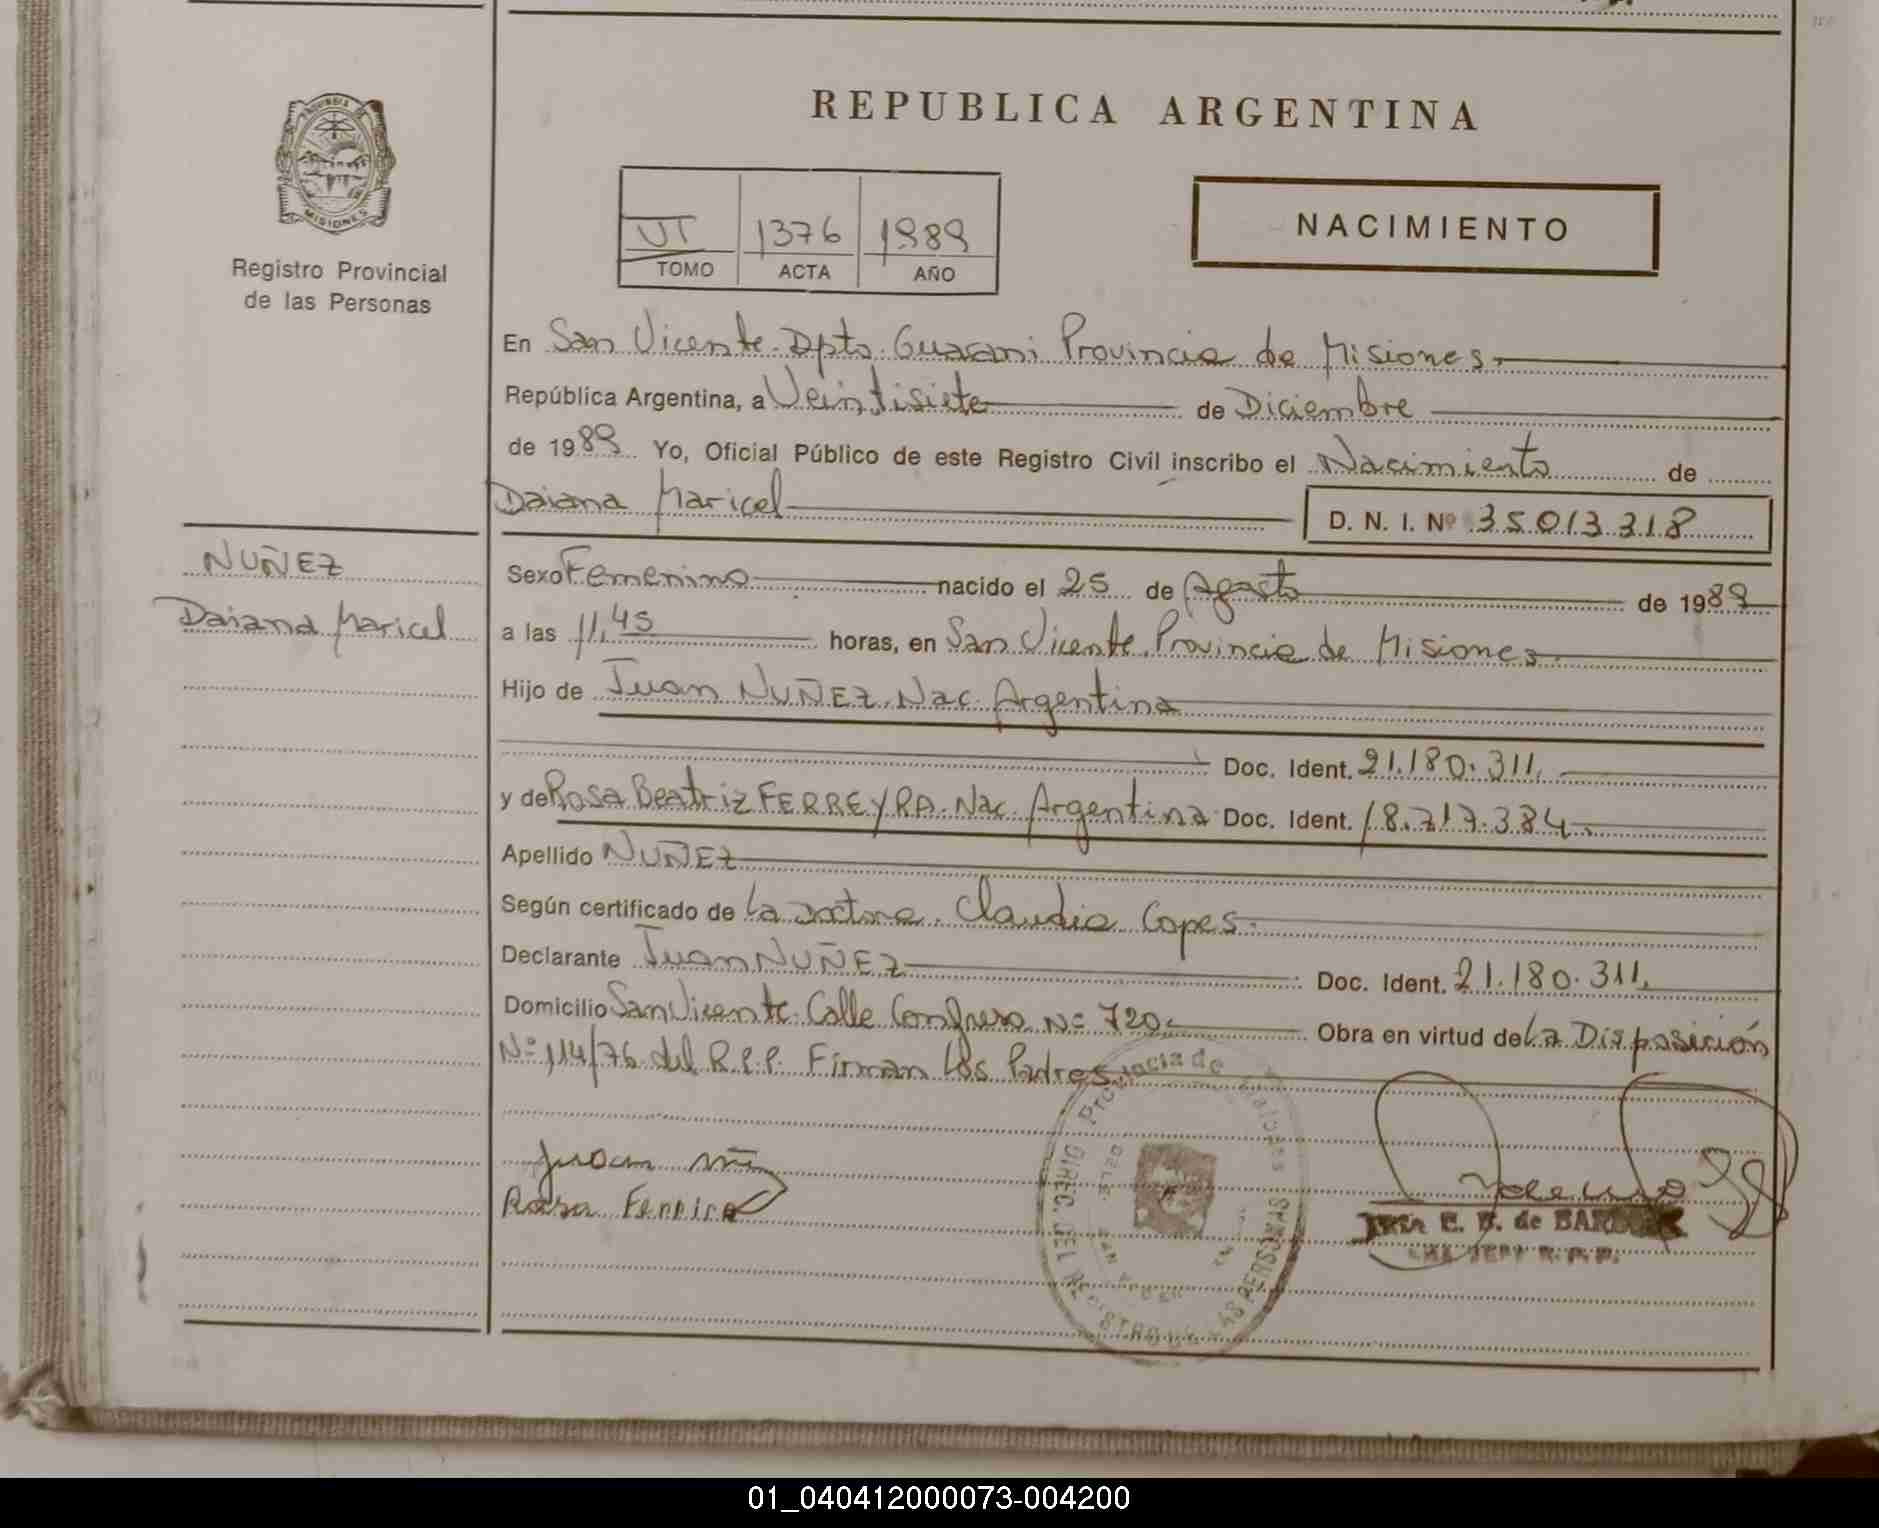 REPUBLICA ARGENTINA
PROVINCIA DE
MISIONES
Registro Provincial
de las Personas
UT 1376 1989
TOMO ACTA AÑO
NACIMIENTO
En San Vicente. Dpto. Guarani Provincia de Misiones.
República Argentina, a Veintisiete de Diciembre
de 1989 Yo, Oficial Público de este Registro Civil inscribo el Nacimiento de
Daiana Maricel D. N. I. Nº 35013318
NUÑEZ
Daiana Maricel
Sexo Femenino nacido el 25 de Agosto de 1989
a las 11,45 horas, en San Vicente. Provincia de Misiones.
Hijo de Juan NUÑEZ. Nac. Argentina
Doc. Ident. 21.180.311.
y de Rosa Beatriz FERREYRA. Nac. Argentina. Doc. Ident. 18.717.384.
Apellido NUÑEZ
Según certificado de La doctora. Claudia Copes.
Declarante Juan NUÑEZ Doc. Ident. 21.180.311.
Domicilio San Vicente. Calle Congreso Nº 720. Obra en virtud de La Disposición
Nº 114/76 del R.P.P. Firman Los Padres
Juan
Rosa Ferreira
Provincia de Misiones
DIREC. DEL REGISTRO DE LAS PERSONAS
E. B. de
JEFE R.P.P.
01_040412000073-004200